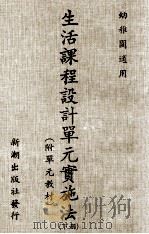 幼稚園適用
生活課程設計單元實施法
(附單元教材)
新潮出版社發行